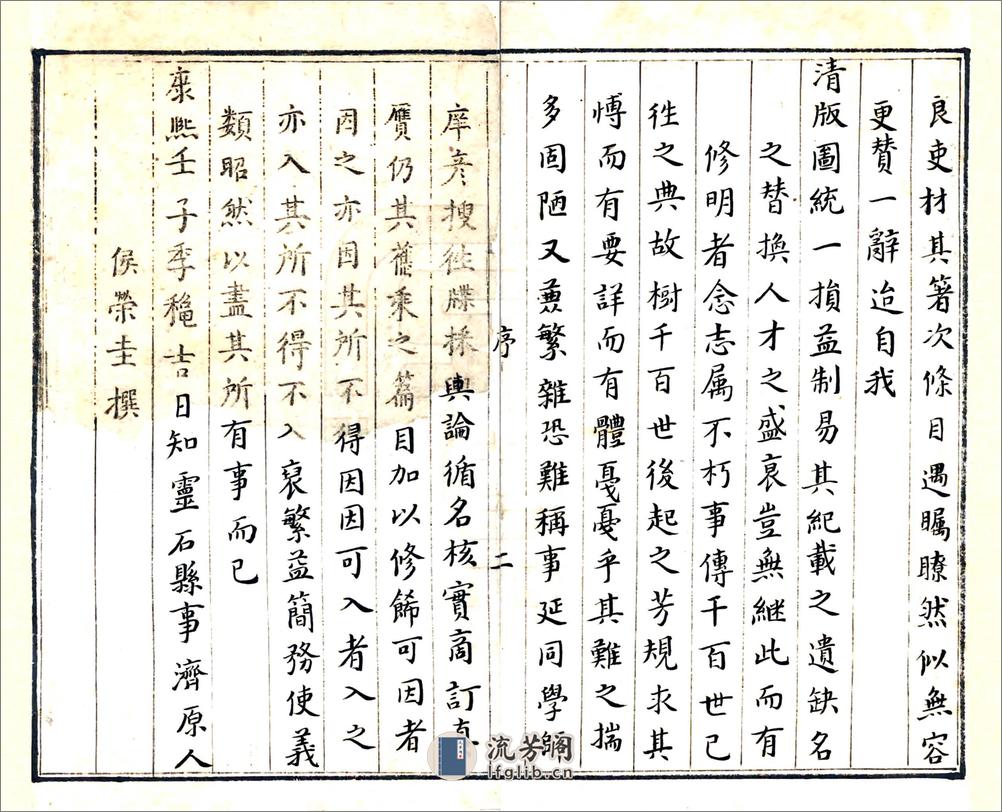 良吏材其箸次條目遇矚瞭然似無容
更贊一辭迨自我
清版圖統一損益制易其紀載之遺缺名
之替換人才之盛衰豈無継此而有
修明者念志属不朽事傳千百世已
徃之典故樹千百世後起之芳規求其
愽而有要詳而有體戞戞乎其難之揣
多固陋又蕪繁雜恐難稱事延同學
序
二
庠彦搜徃牒採輿論循名核實商訂
贗仍其舊乘之篇目加以修餙可因者
因之亦因其所不得因因可入者入之
亦入其所不得不入裒繁益簡務使義
類昭然以盡其所有事而已
康熈壬子季穐吉日知靈石縣事濟原人
侯榮圭撰
流芳阁
lfglib.cn